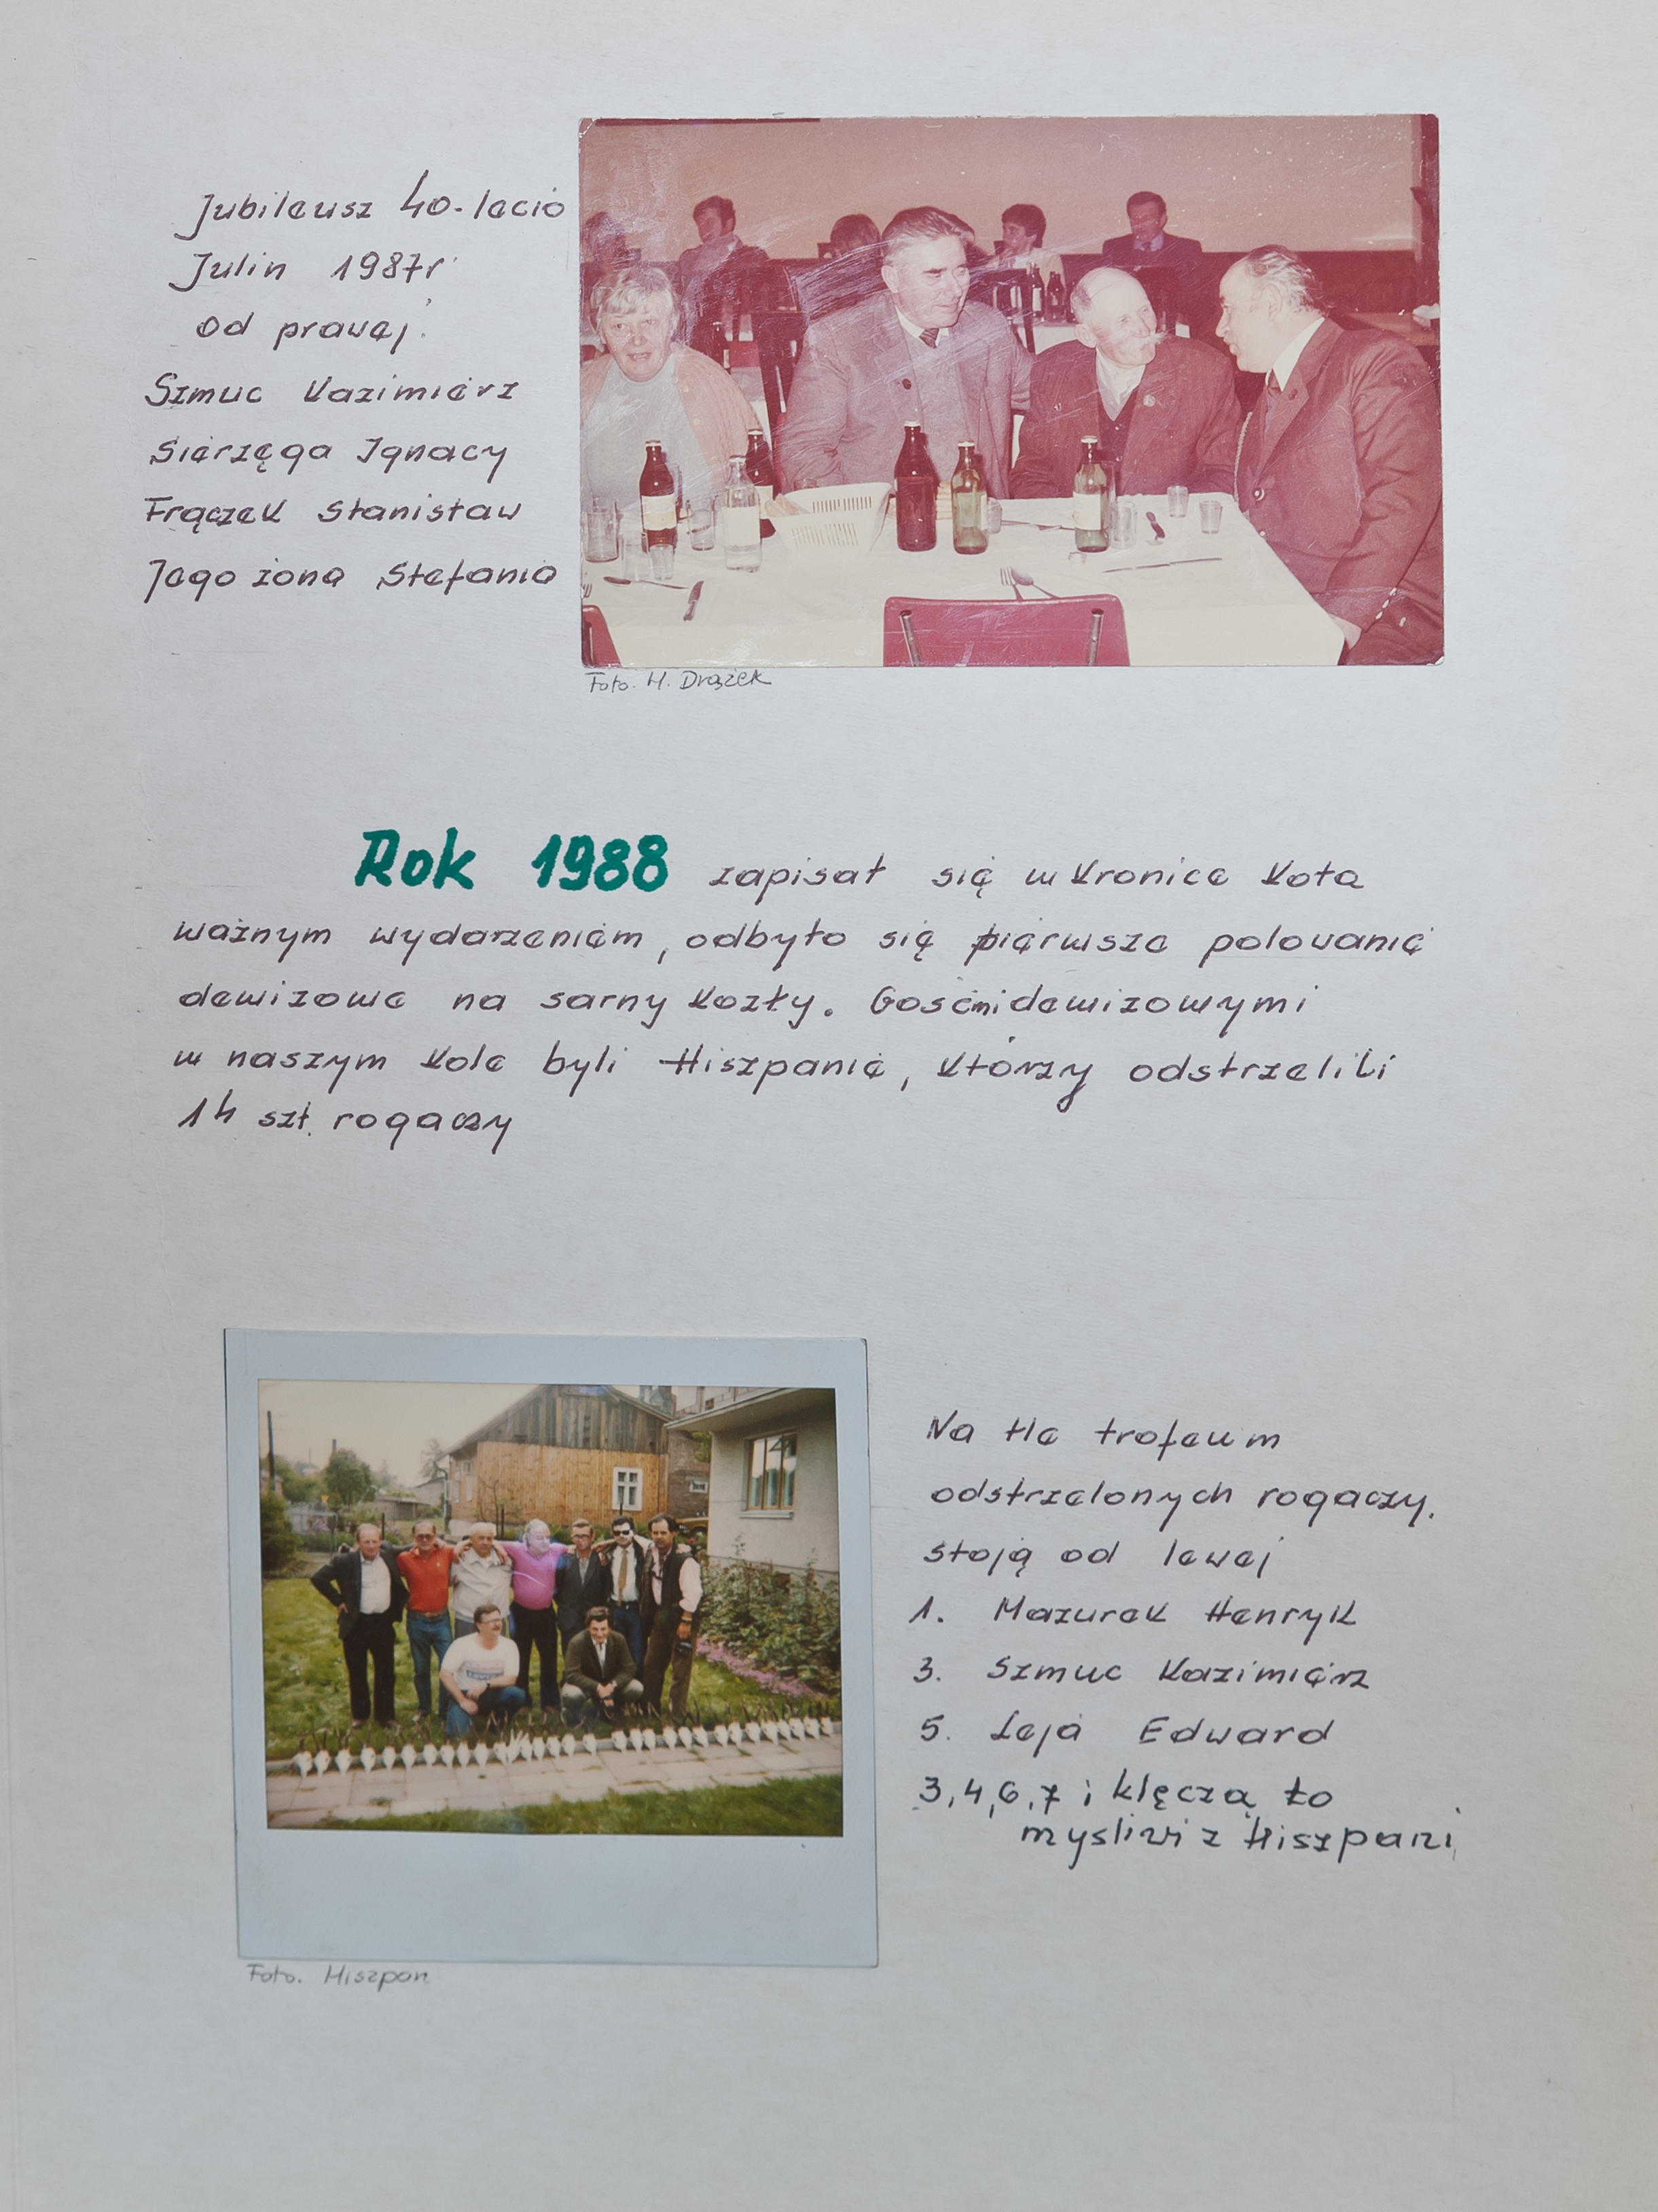 Jubileusz 40-lecia
Julin 1987r.
od prawej:
Szmuc Kazimierz
Sierzęga Ignacy
Frączek Stanisław
Jego żona Stefania
Foto. H. Drążek
Rok 1988 zapisał się w kronice koła
ważnym wydarzeniem, odbyło się pierwsze polowanie
dewizowe na sarny kozły. Gośćmi dewizowymi
w naszym kole byli Hiszpanie, którzy odstrzelili
14 szt. rogaczy
Na tle trofeum
odstrzelonych rogaczy.
stoją od lewej
1. Mazurek Henryk
3. Szmuc Kazimierz
5. Leja Edward
3, 4, 6, 7 i klęczą to
mysliwi z Hiszpani
Foto. Hiszpan